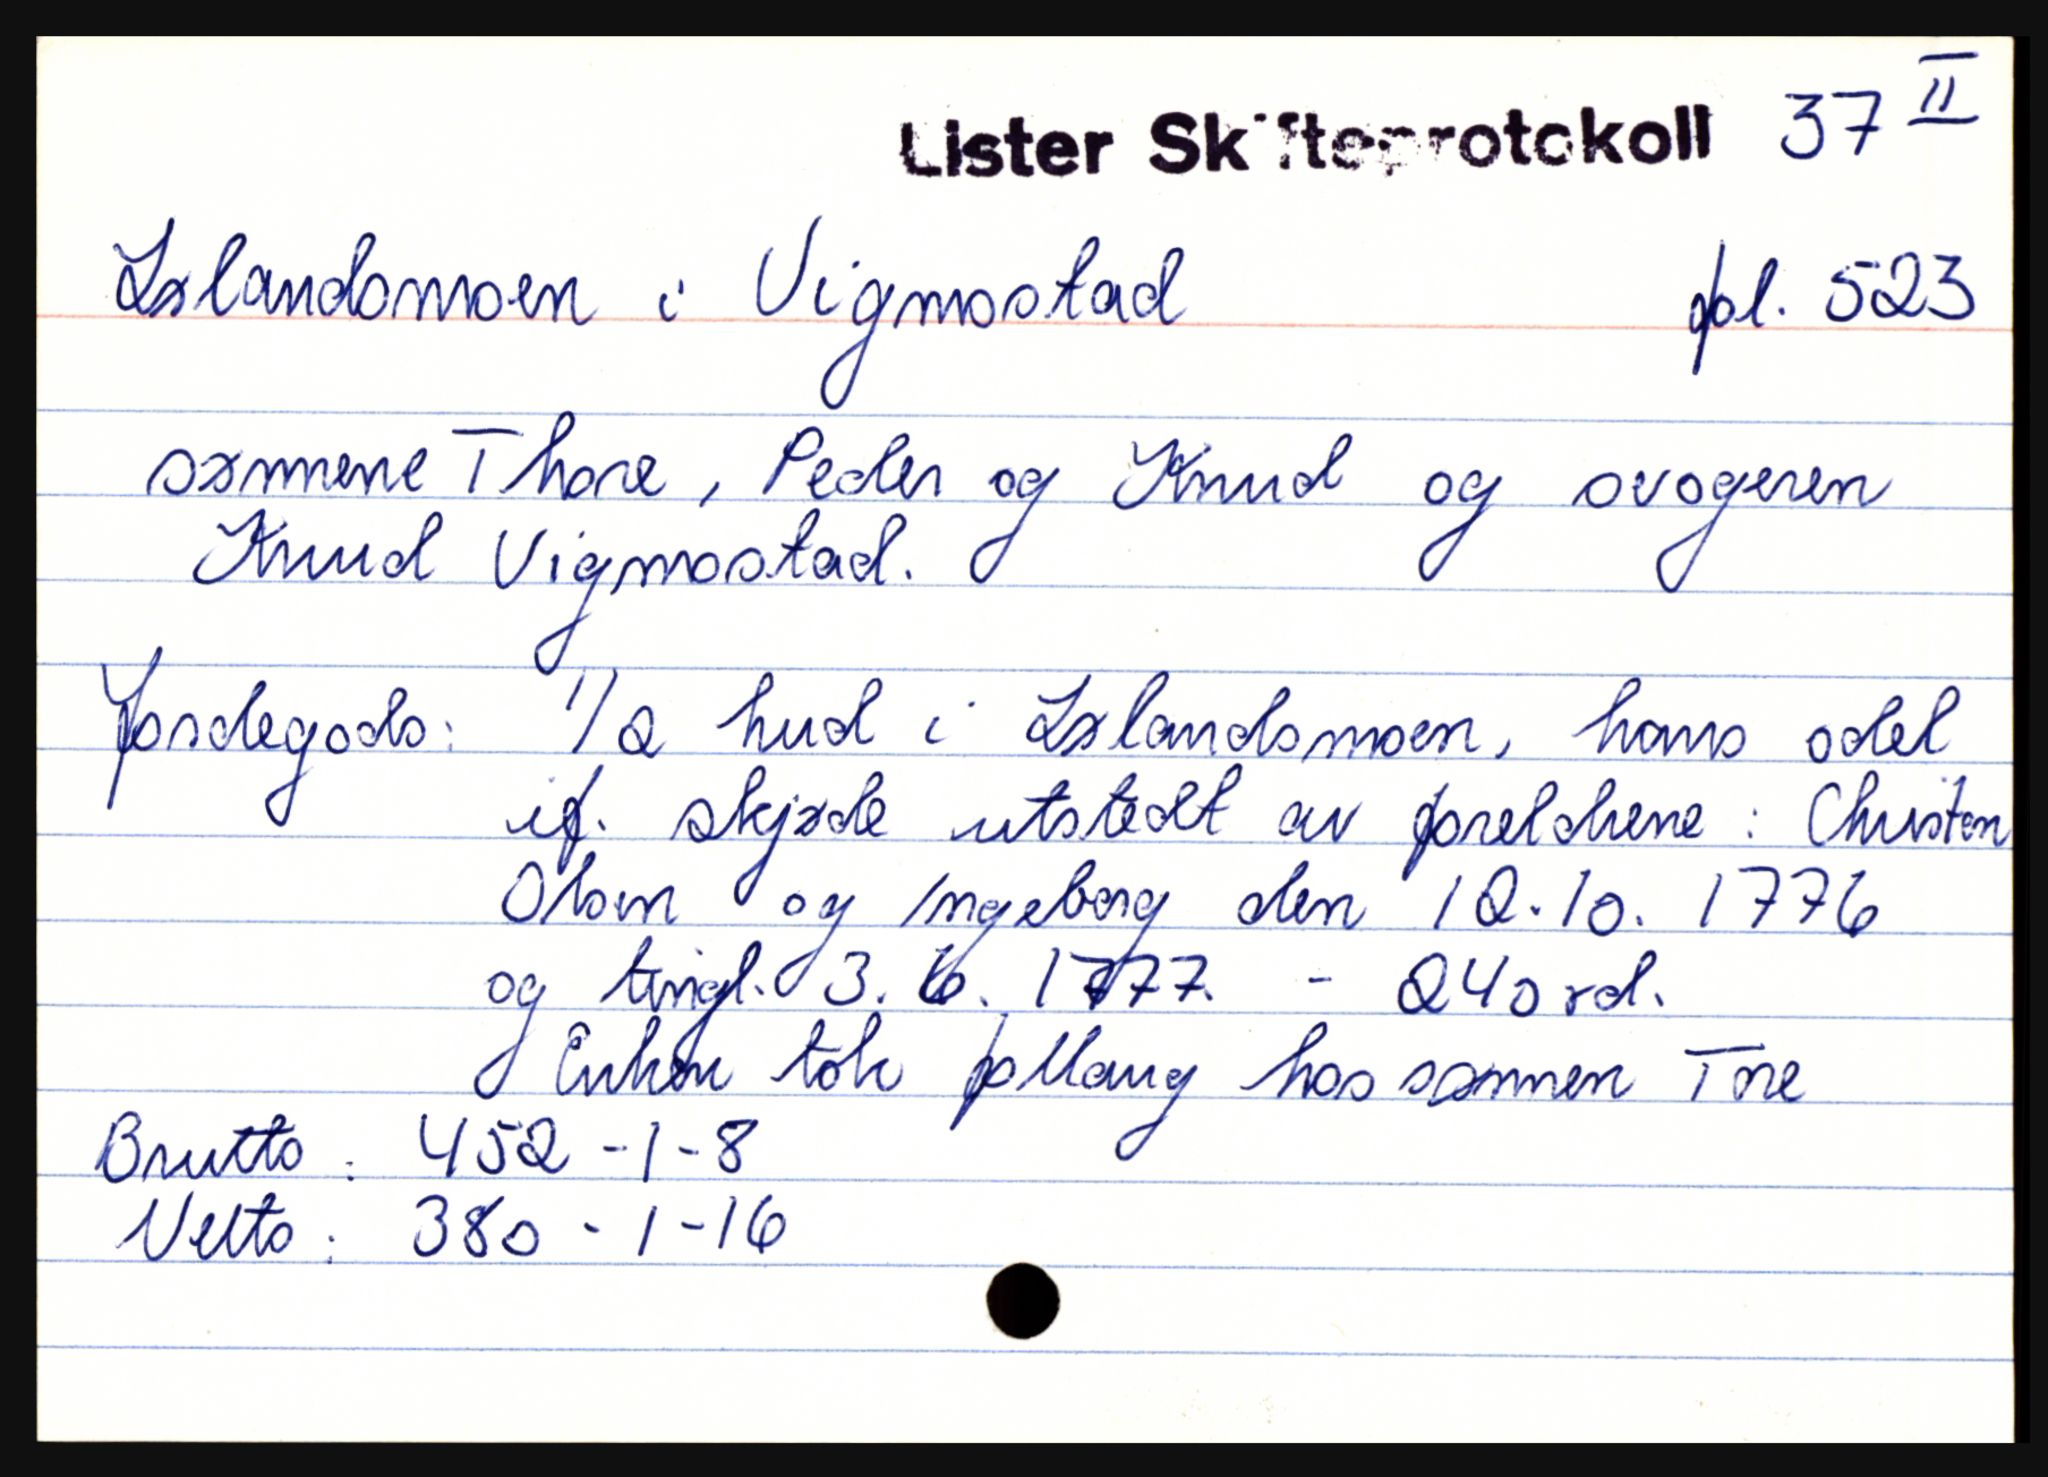 Lister Skifteprotokoll 37 II
Løland​smoen i Vigmostad fol. 523
sønnene Thore, Peder og Knud og svogeren
Knud Vigmostad.
Jordegods: 1/2 hud i Lølandsmoen, hans odel
if. skjøde utstedt av foreldrene : Christen
Olsen og Ingeborg den 12.10. 1776
og tingl. 3. 6. 1777. - 240 rd.
Enken tok follaug hos sønnen Tore
Brutto : 452 - 1 - 8
Netto : 380 - 1 - 16